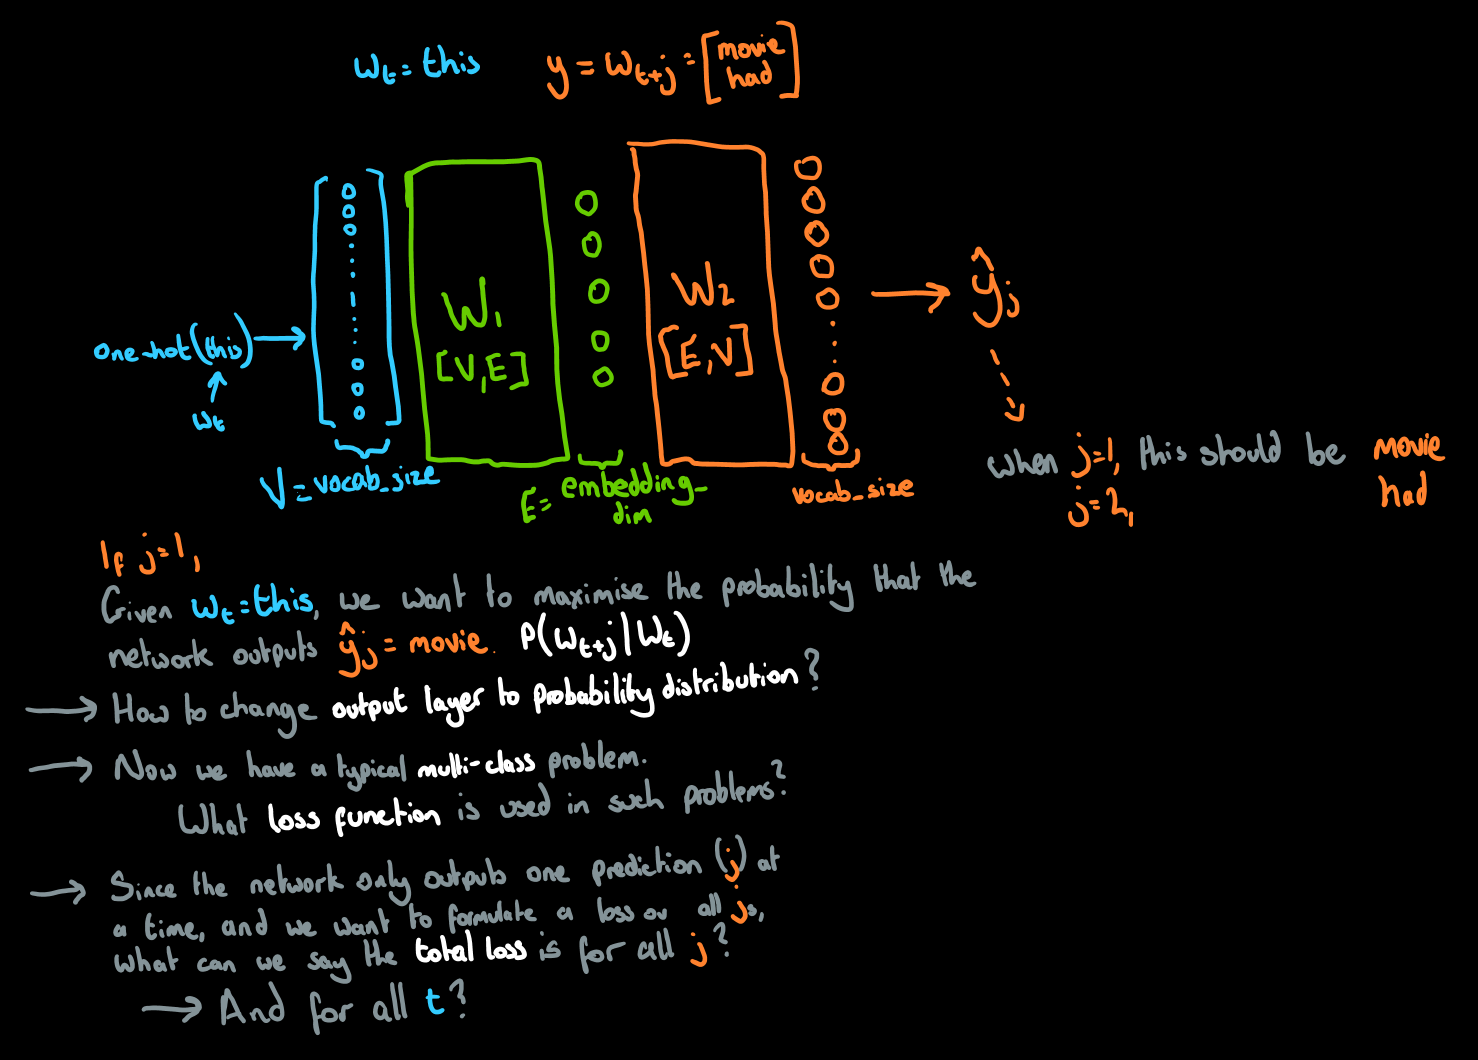 wt = this
y = wt+j = [movie
had]
one-hot(this)
wt
V = vocab_size
W1
[V,E]
E = embedding_
dim
W2
[E,V]
vocab_size
ŷj
when j=1, this should be movie
j=2, had
If j=1,
Given wt = this, we want to maximise the probability that the
network outputs ŷj = movie. P(wt+j | wt)
→ How to change output layer to probability distribution?
→ Now we have a typical multi-class problem.
What loss function is used in such problems?
→ Since the network only outputs one prediction (j) at
a time, and we want to formulate a loss ov all js,
what can we say the total loss is for all j?
→ And for all t?